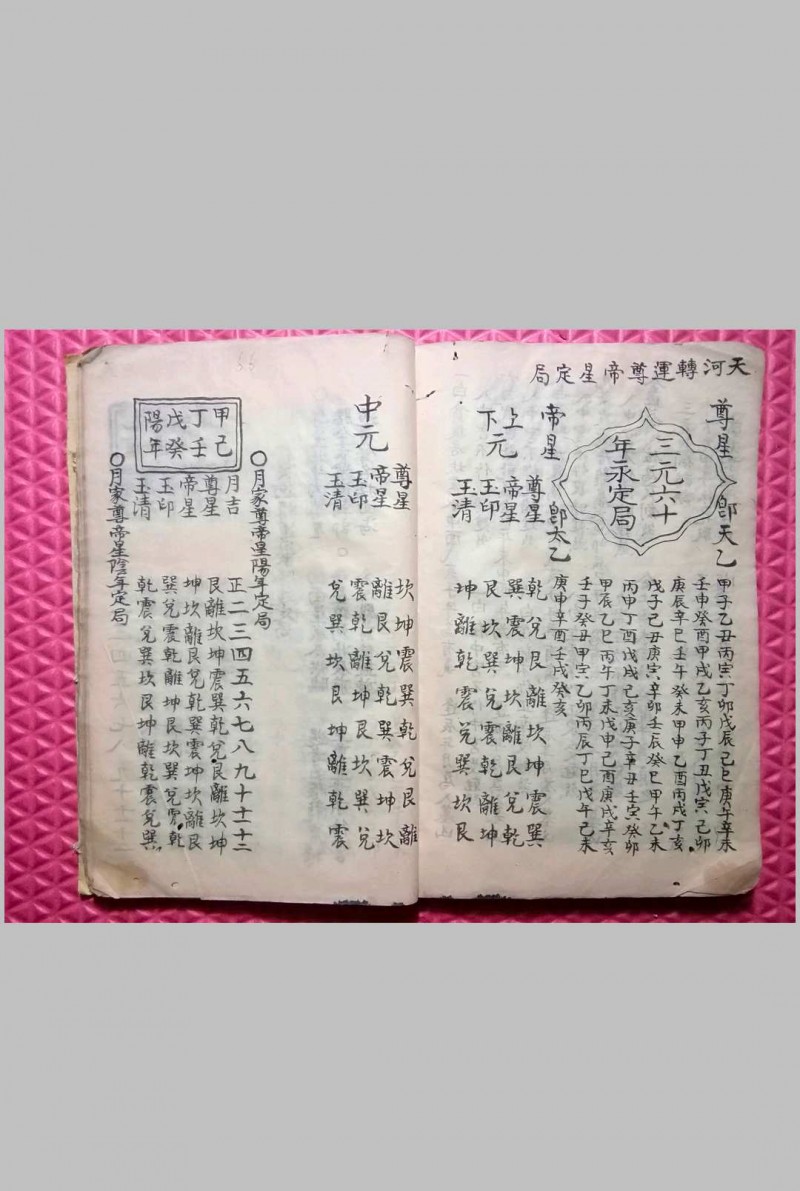 天河轉運尊帝星定局
尊星 即天乙
三元六十
年永定局
帝星 即太乙
甲子乙丑丙寅丁卯戊辰己巳庚午辛未
壬申癸酉甲戌乙亥丙子丁丑戊寅己卯
庚辰辛巳壬午癸未甲申乙酉丙戌丁亥
戊子己丑庚寅辛卯壬辰癸巳甲午乙未
丙申丁酉戊戌己亥庚子辛丑壬寅癸卯
甲辰乙巳丙午丁未戊申己酉庚戌辛亥
壬子癸丑甲寅乙卯丙辰丁巳戊午己未
庚申辛酉壬戌癸亥
上下元
尊星 乾兌艮離坎坤震巽
帝星 巽震坤坎離艮兌乾
玉印 艮坎巽兌震乾離坤
玉清 坤離乾震兌巽坎艮
中元
尊星 坎坤震巽乾兌艮離
帝星 離艮兌乾巽震坤坎
玉印 震乾離坤艮坎巽兌
玉清 兌巽坎艮坤離乾震
○月家尊帝星陽年定局
甲己
丁壬
戊癸
陽年
月吉 正二三四五六七八九十十一十二
尊星 艮離坎坤震巽乾兌艮離坎坤
帝星 坤坎離艮兌乾巽震坤坎離艮
玉印 巽兌震乾離坤艮坎巽兌震乾
玉清 乾震兌巽坎艮坤離乾震兌巽
○月家尊帝星陰年定局